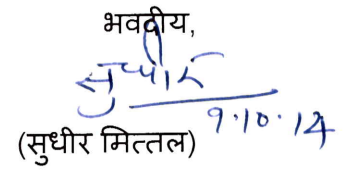 भवदीय,
सुधीर
9.10.14
(सुधीर मित्तल)